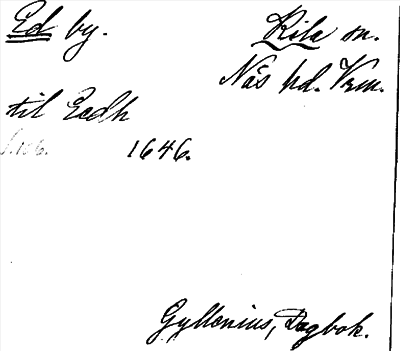 Ed by.
Kila sn.
Näs hd. Vrm.
til Eedh
s. 186.
1646.
Gyllenius, Dagbok.